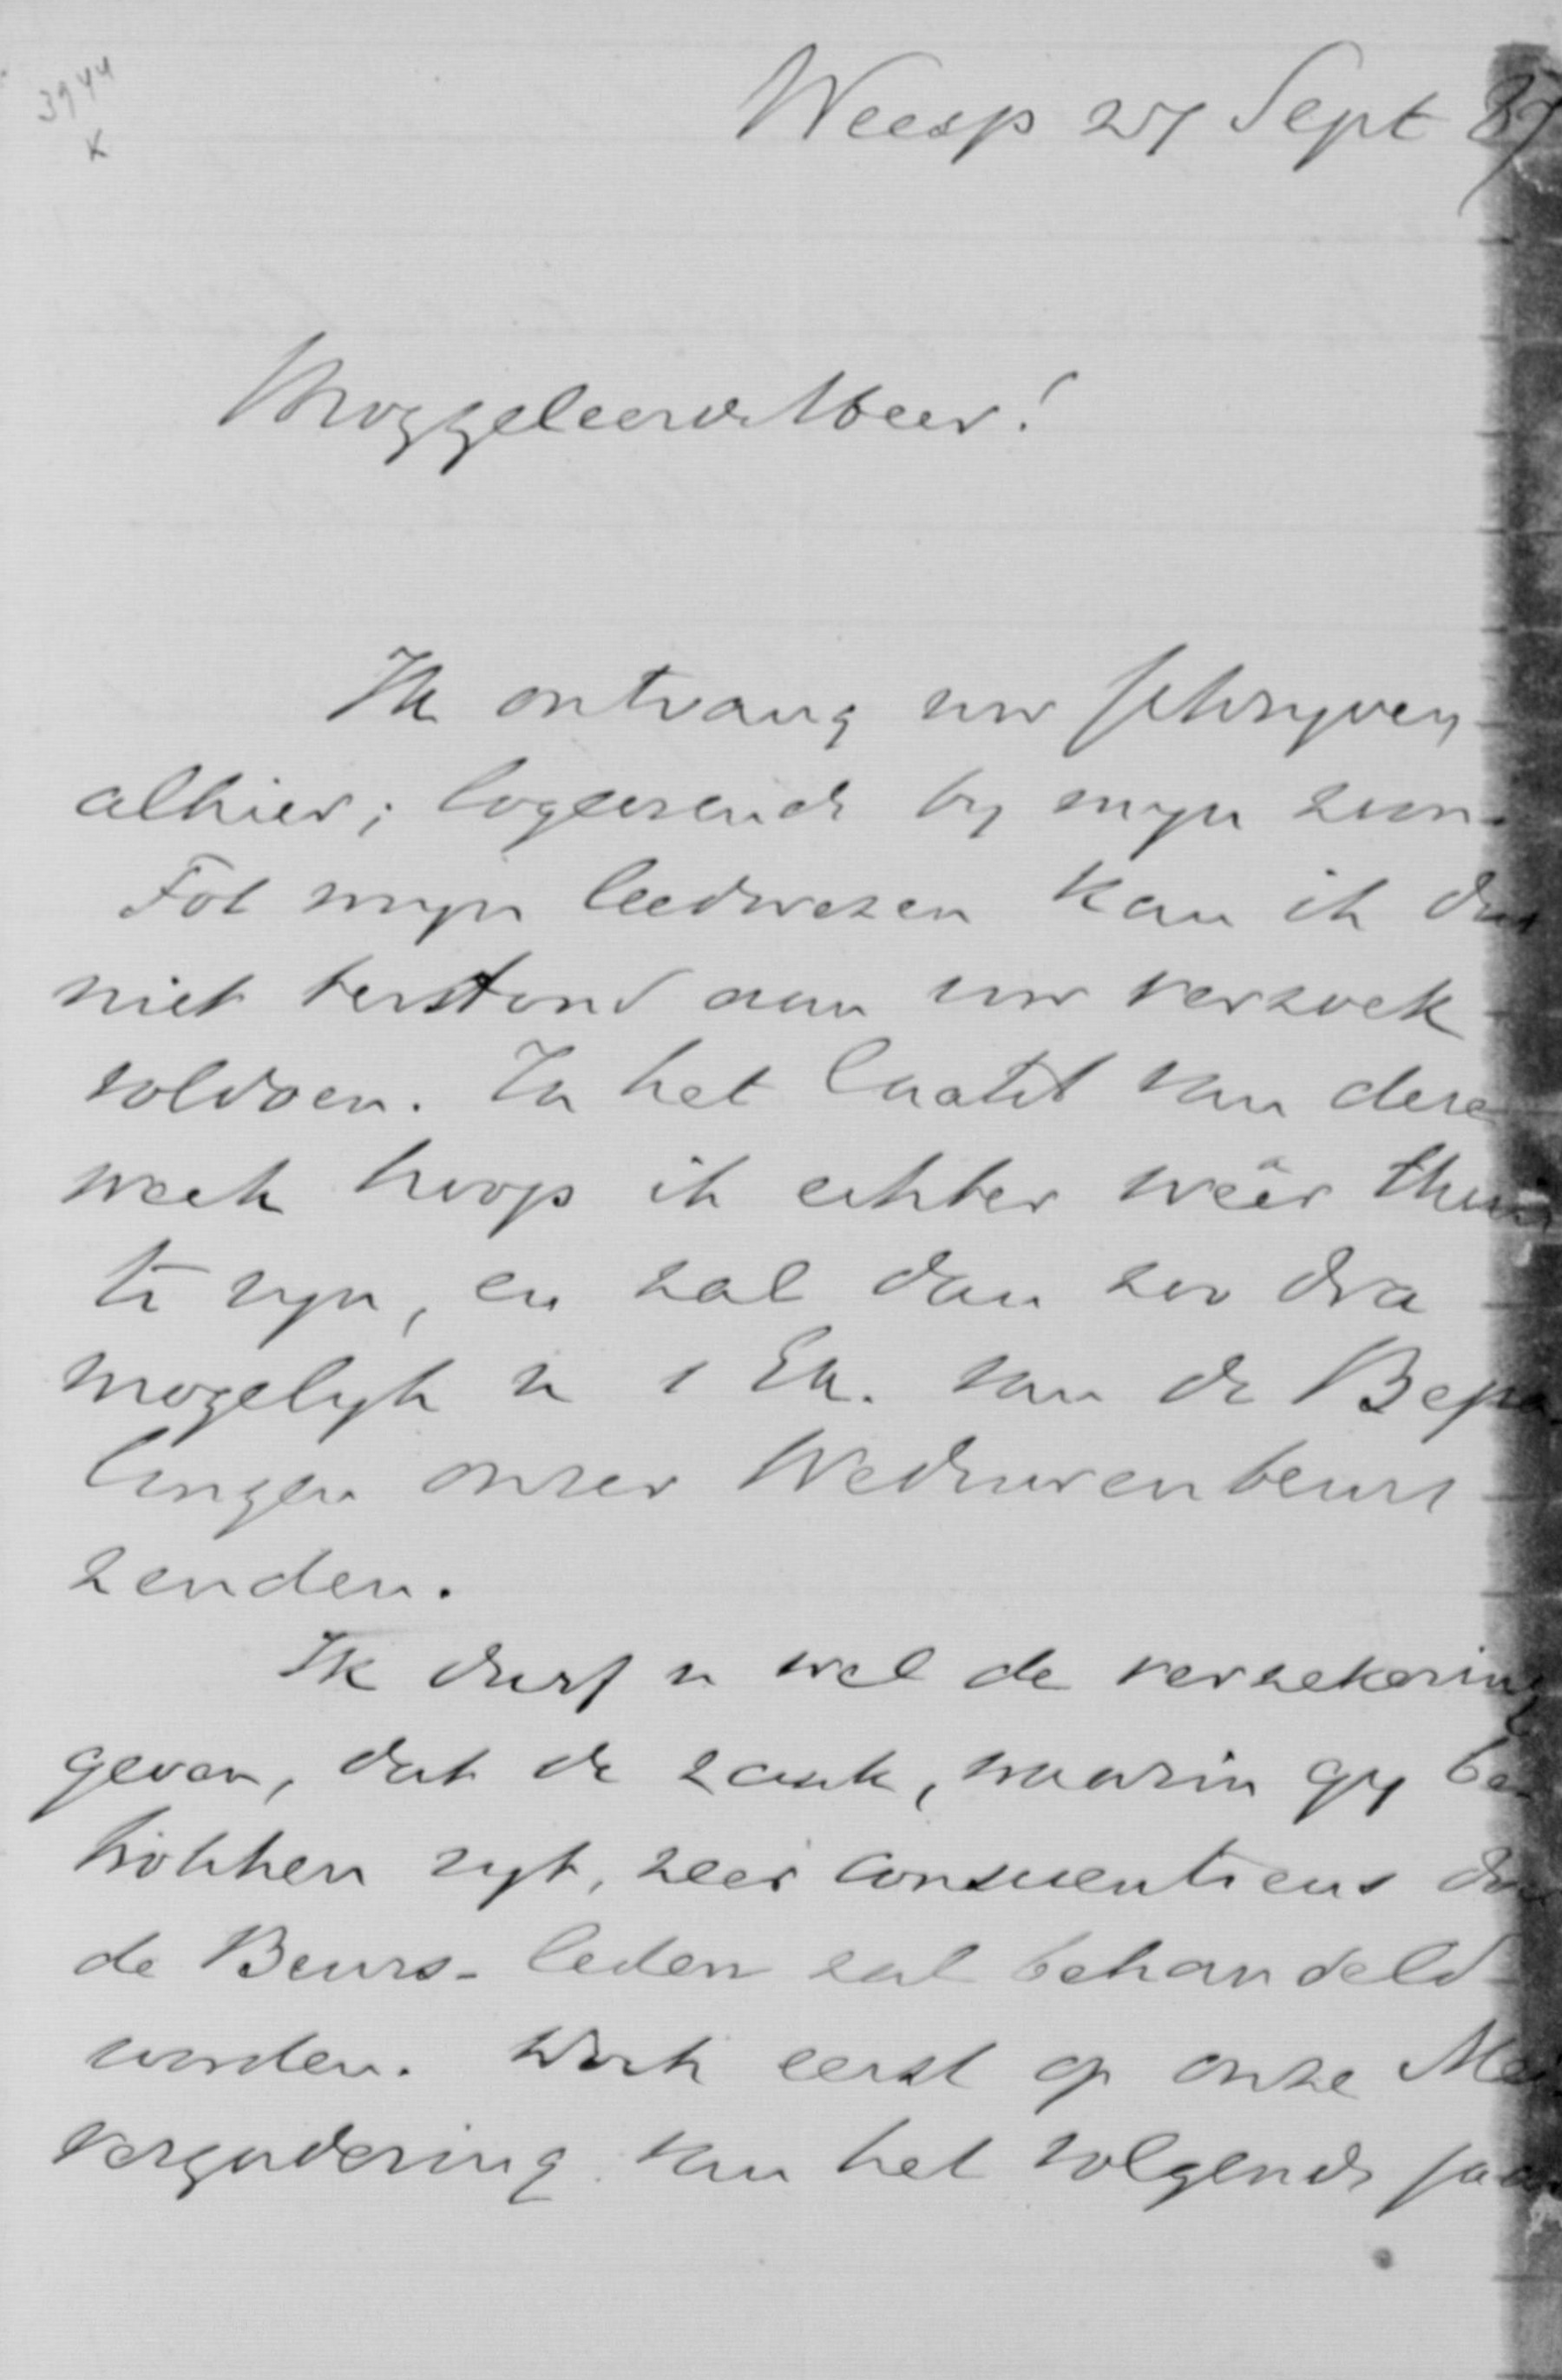 3944
K
Weesp 27 Sept 87
Hooggeleerde Heer!
Ik ontvang uw schryven
alhier; logeerende by myn zoon.
Tot myn leedwezen kan ik dus
niet terstond aan uw verzoek
voldoen. In het laatst van deze
week hoop ik echter weêr thuis
te zyn, en zal dan zoo dra
mogelyk u 1 Ex. van de Bepa
lingen onzer Weduwenbeurs
zenden.
Ik durf u wel de verzekering
geven, dat de zaak, waarin gy be
trokken zyt, zeer conscientieus door
de Beurs-leden zal behandeld
worden. Doch eerst op onze Mei
vergadering van het volgende jaar